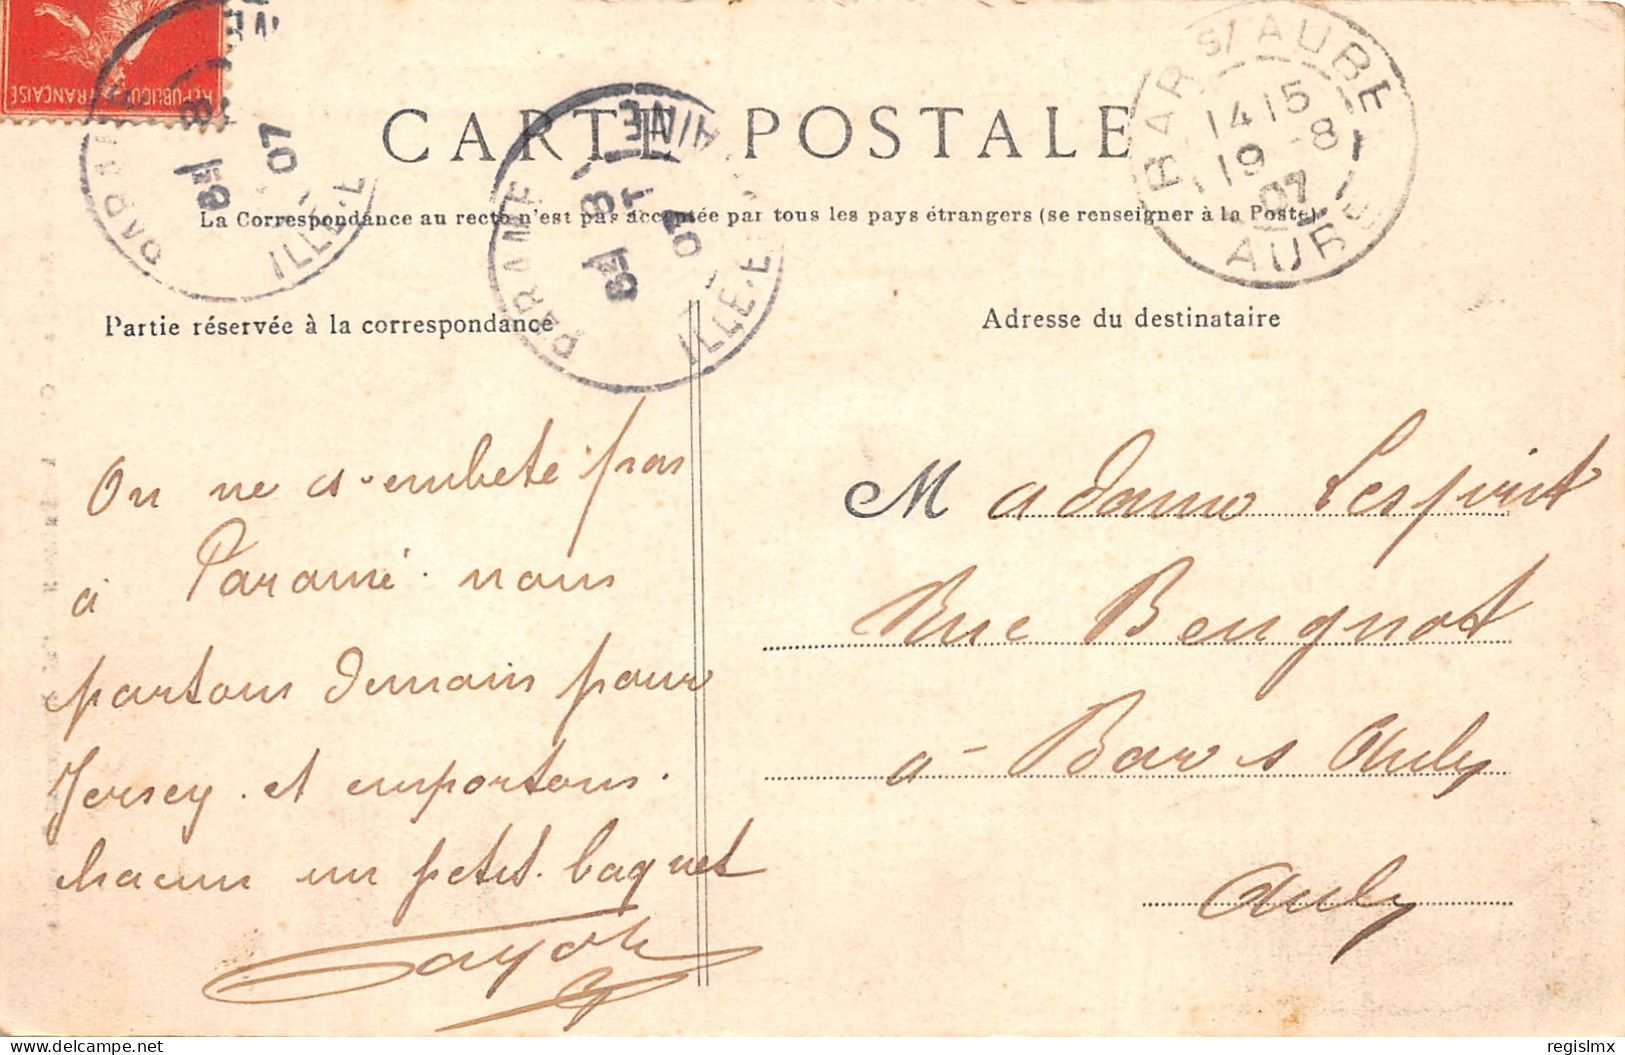 REPUBLIQUE FRANÇAISE
PARAMÉ
8 - 8
07
ILLE-E
CARTE POSTALE
PARAMÉ
8 - 8
07
ILLE-E
BAR S/ AUBE
14 15
19 -8
07
AUBE
La Correspondance au recto n'est pas acceptée par tous les pays étrangers (se renseigner à la Poste).
Partie réservée à la correspondance
On ne s'embete pas
à Paramé. nous
partons demain pour
Jersey. et emportons.
chacun un petit. baquet
Adresse du destinataire
Madame Lesprit
Rue Beugnot
à Bar s Aube
Aube
delcampe.net
regislmx